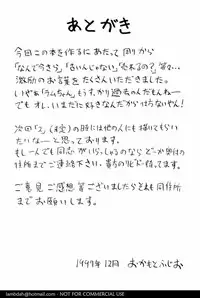 あとがき
今回この本を作るにあたって周りから
「なんで今さら」「古いんじゃない」「売れるの?」等々…
激励のお言葉をたくさんいただきました。
いやぁ「ラムちゃん」もすっかり過去の人だもんねー
でも オレ、いまだに好きなんだから仕方ないやん!
次回「2」(未定)の時には他の人にも描いてもらい
たいなーと思っております。
もし一人でも同志がいらっしゃるのなら どーか奥付の
住所までご連絡下さい、貴方の 待ってます。
ご意見 ご感想 等ございましたらそれも同住所
までお願いします。
1997年 12月 おかもとふじお
lambdah@hotmail.com - NOT FOR COMMERCIAL USE